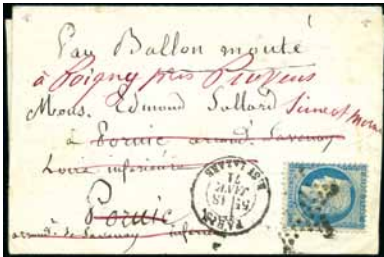 Par Ballon monté
à Poigny près Provins
Mons. Edmond Sollard Seine et Marne
à Pornic arrond. Savenay
Loire inférieure
Pornic
arrond. de Savenay inférieure
PARIS
R. ST LAZARE
5E
18
JANV.
71